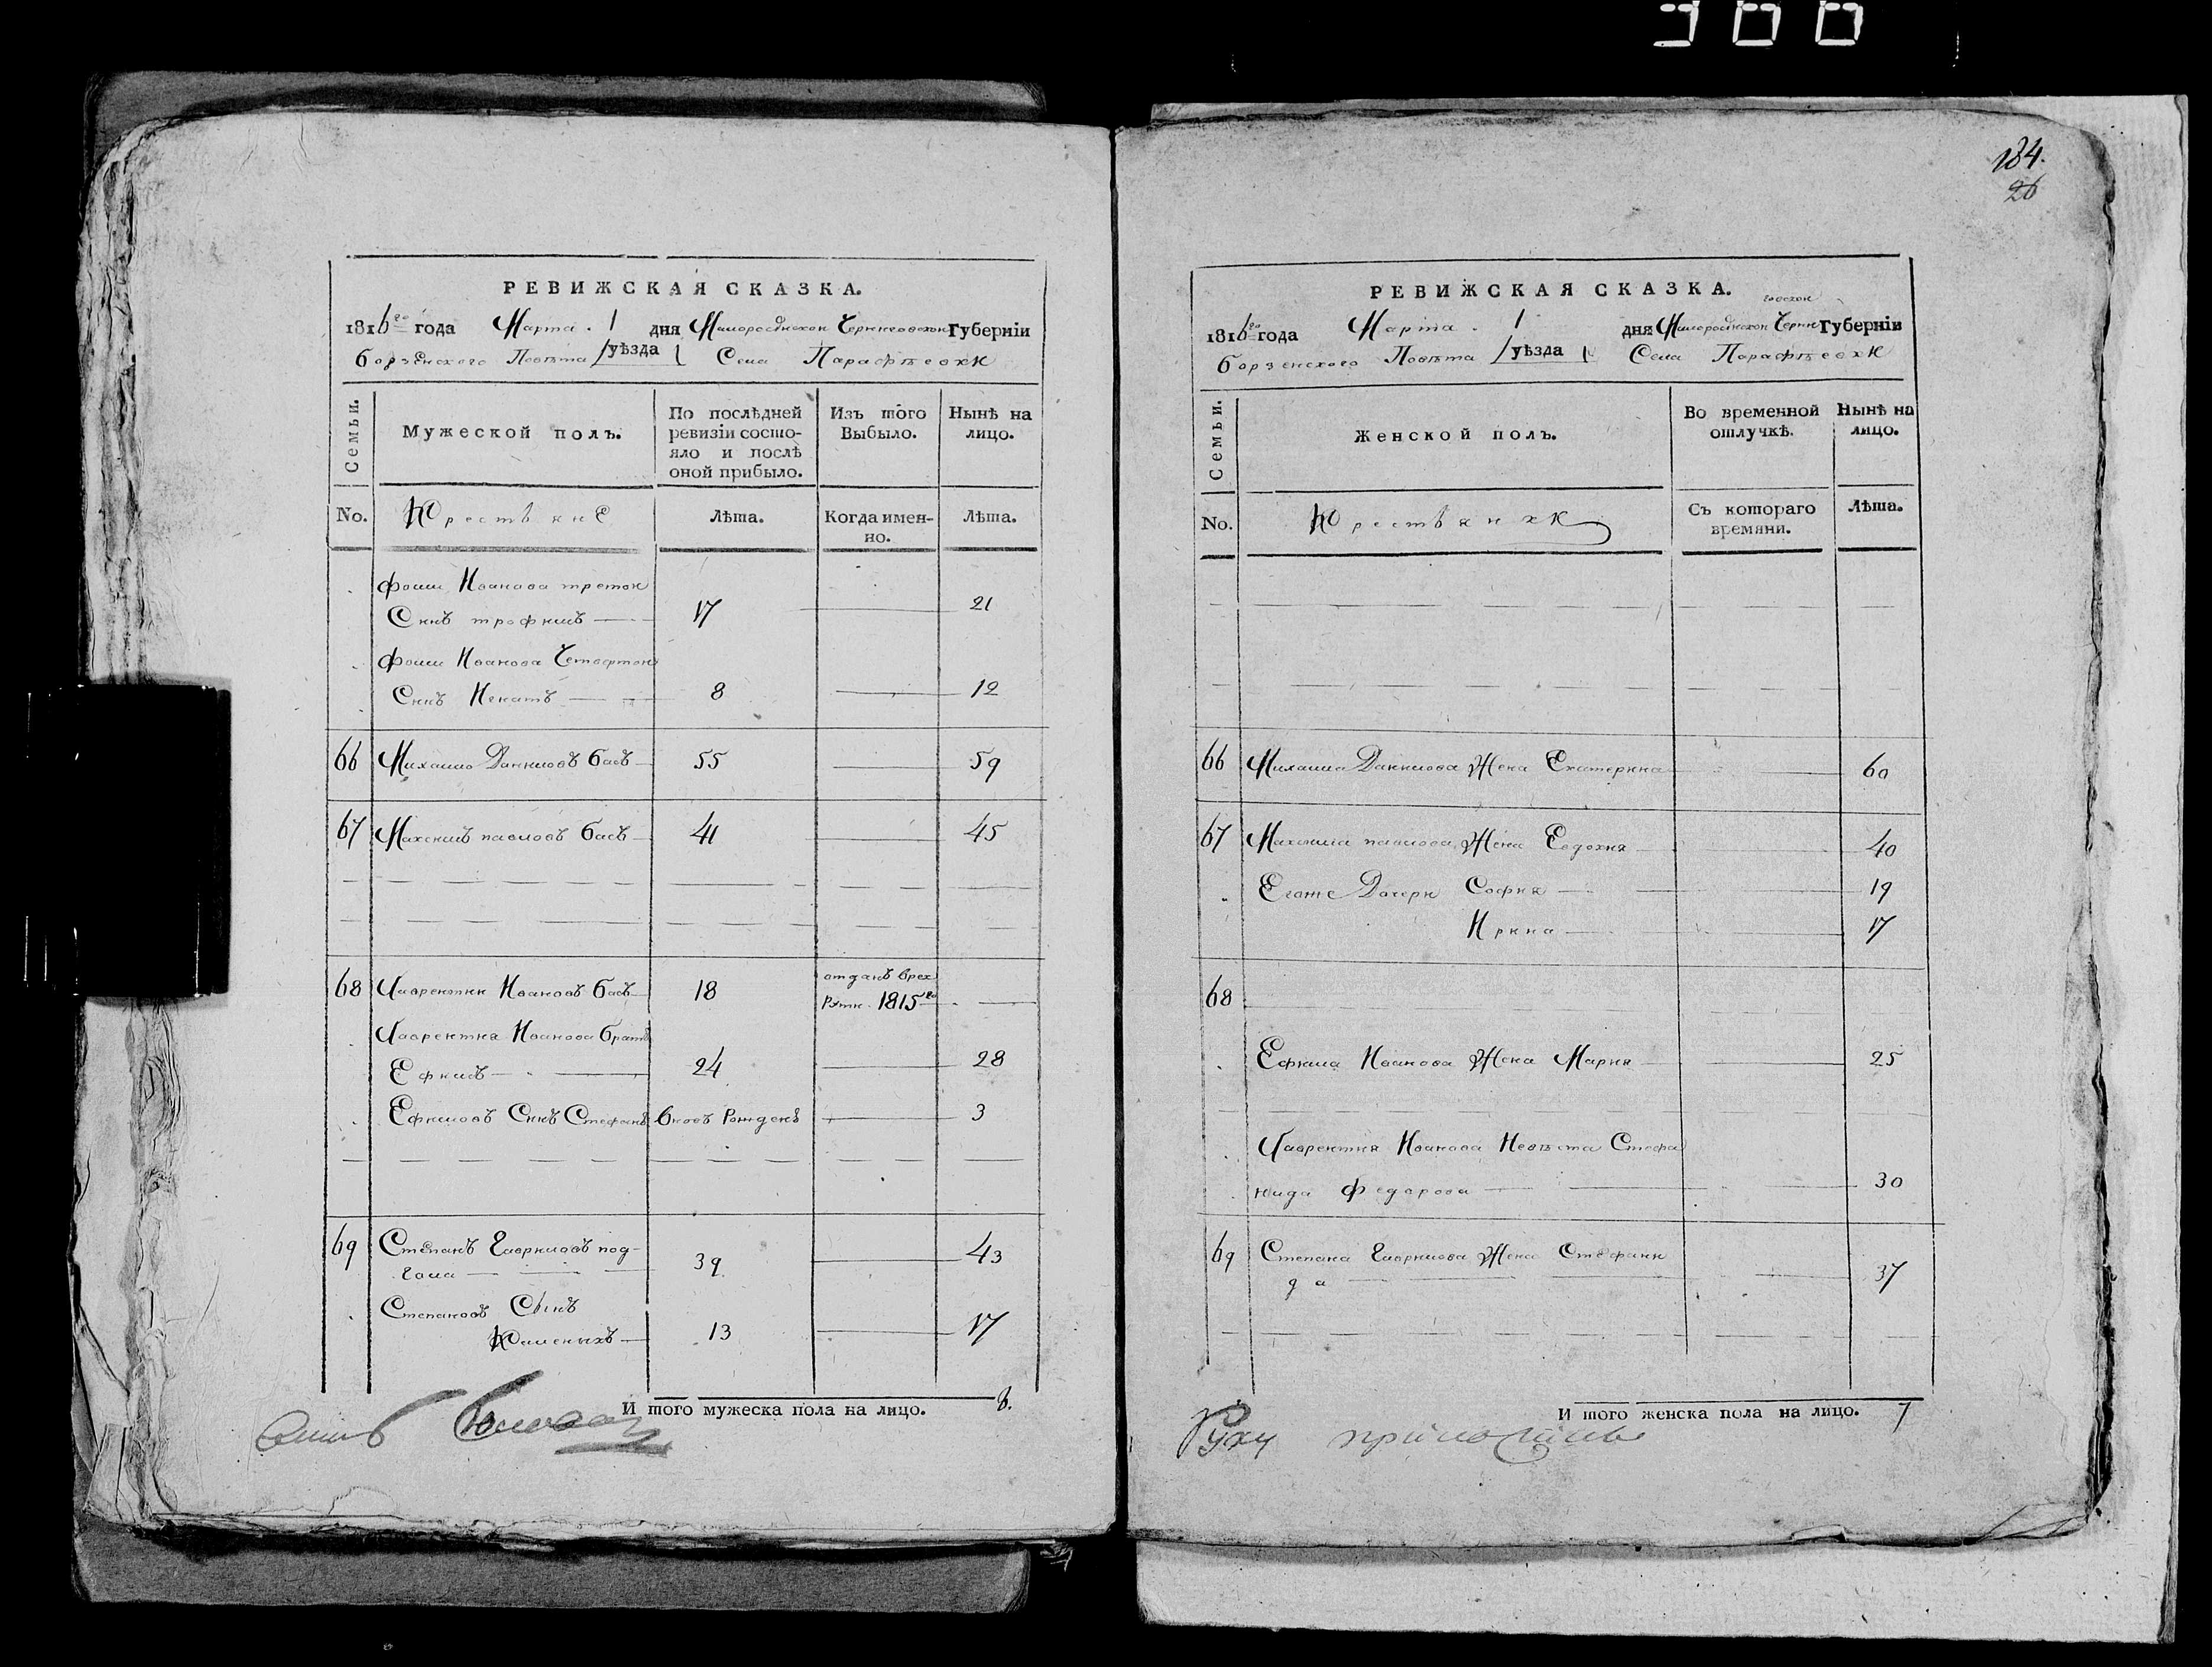 184.
26
РЕВИЖСКАЯ СКАЗКА.
1816го года Марта 1 дня Малоросійской Черниговской Губерніи
Борзенского Повѣта уѣзда Села Парафѣевки
Семьи.
Мужеской полъ.
По послѣдней ревизіи состо-
яло и послѣ
оной прибыло.
Изъ того
Выбыло.
Нынѣ на
лицо.
No.
Крестьяне
Лѣта.
Когда имен-
но.
Лѣта.
Фомы Иванова третой
Снъ Трофимъ 17 21
Фомы Иванова Четвертой
Снъ Игнатъ 8 12
66 Михайло Даниловъ Басъ 55 59
67 Максимъ павловъ Басъ 41 45
68 Лаврентий Ивановъ Басъ 18 отданъ врек
рути 1815го
Лаврентия Иванова братъ
Ефимъ 24 28
Ефимовъ Снъ Стефанъ вновь рожденъ 3
69 Степанъ Гавриловъ под-
39 43
Степановъ Сынъ
13 17
И того мужеска пола на лицо. 8.
РЕВИЖСКАЯ СКАЗКА.
1816го года Марта 1 дня Малоросійской Черни
говской
Губерніи
Борзенского Повѣта уѣзда Села Парафѣевки
Семьи.
Женской полъ.
Во временной
отлучкѣ.
Нынѣ на
лицо.
No.
Крестьянки
Съ котораго
времяни.
Лѣта.
66 Михаила Данилова Жена Екатерина 60
67 Максима павлова Жена Евдокия 40
Егоже Дочери София 19
Ирина 17
68
Ефима Иванова Жена Мария 25
Лаврентия Иванова Невѣста Стефа
нида Федорова 30
69 Степана Гаврилова Жена Стефани
да 37
И того женска пола на лицо. 7
Руку приложилъ